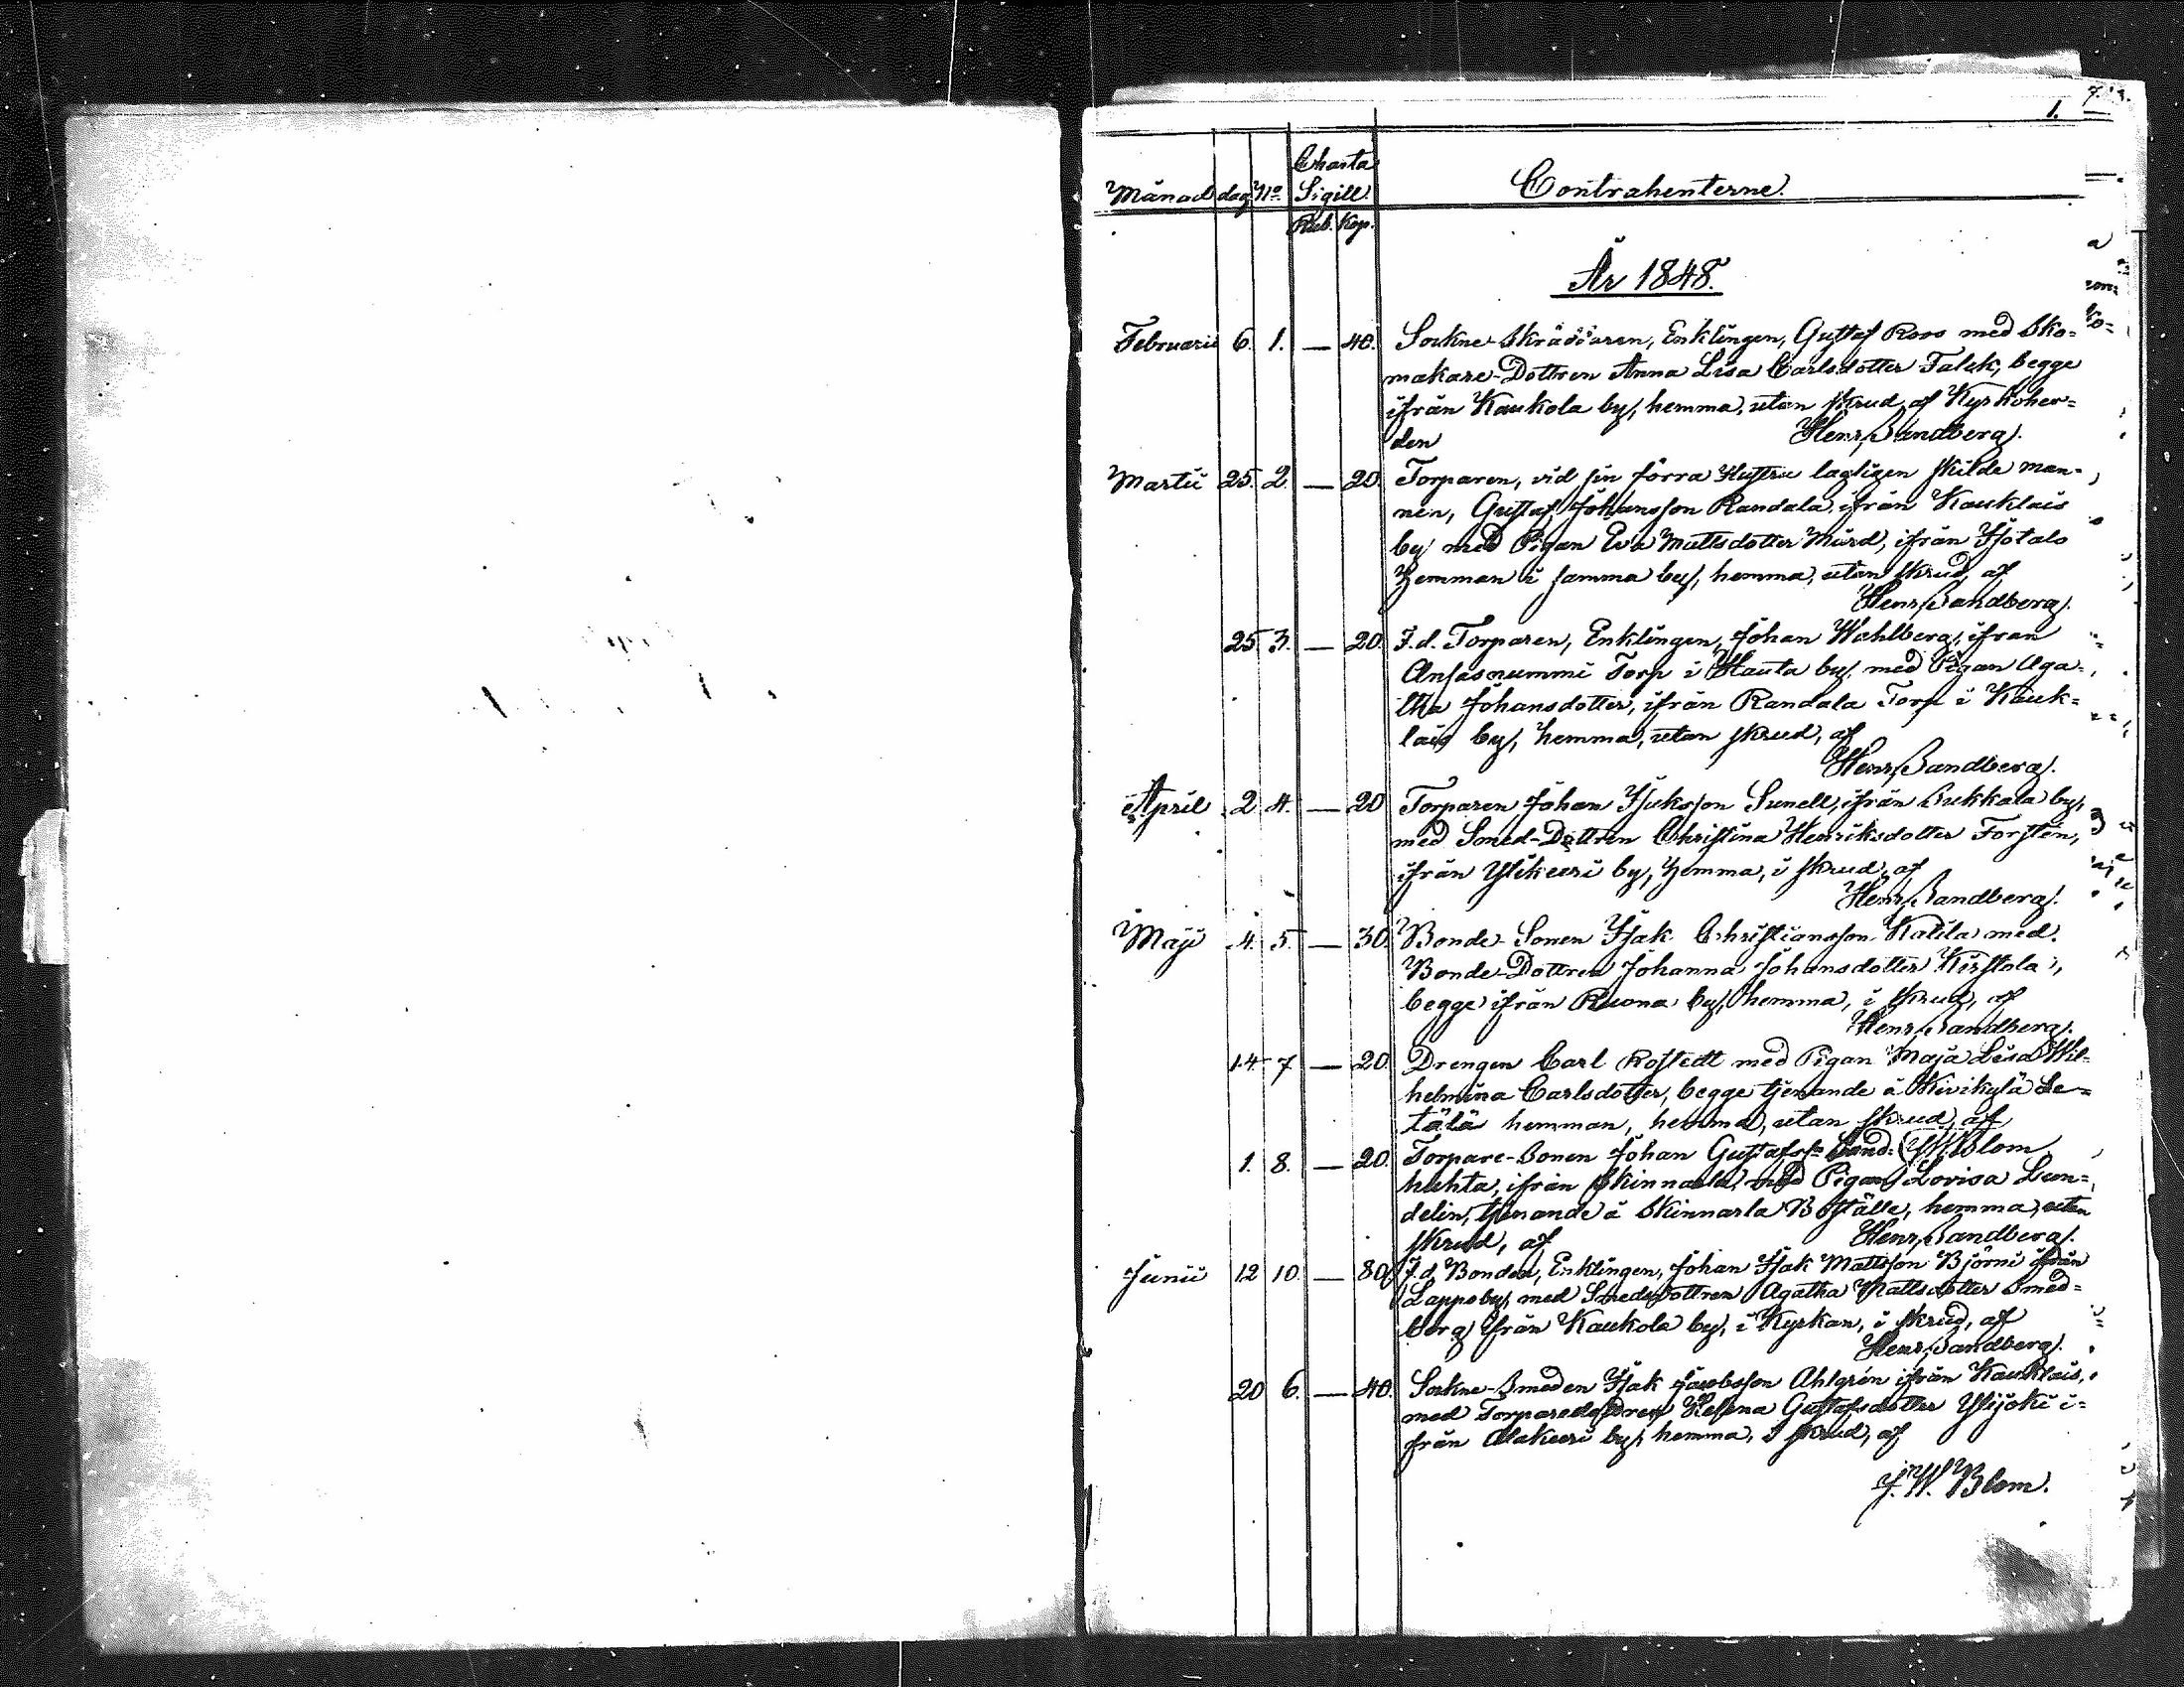 1.
Charta
Månad dag No. Sigill. Contrahenterne.
Rub. Kop.
År 1848.
Februarii 6. 1. — 40. Sockne-Skräddaren, Enklingen, Gustaf Roos med Sko-
makare-Dottren Anna Lisa Carlsdotter Falck, begge
ifrån Kaukola by, hemma, utan skrud, af Kyrkoher-
den Henr. Sandberg.
Martii 25. 2. — 20. Torparen, vid sin förra Hustru lagligen skilde man-
nen, Gustaf Johansson Randala, ifrån Kauklais
by med Pigan Eva Mattsdotter Mård, ifrån Isotalo
Hemman i samma by, hemma, utan skrud, af
Henr. Sandberg.
25 3. — 20. F.d. Torparen, Enklingen, Johan Wahlberg, ifrån
Ansasnummi Torp i Hauta by, med Pigan Aga-
tha Johansdotter, ifrån Randala Torp i Kauk-
lais by, hemma, utan skrud, af
Henr. Sandberg.
April 2 4. — 20 Torparen Johan Isaksson Sunell, ifrån Sukkala by,
med Smed-Dottren Christina Henriksdotter Forstén,
ifrån Ylikeeri by, hemma, i skrud, af
Henr. Sandberg.
Maji 4. 5. — 30. Bonde-Sonen Isak Christiansson Katila med
Bonde-Dottren Johanna Johansdotter Kirstola,
begge ifrån Ruona by, hemma, i skrud, af
Henr. Sandberg.
14 7 — 20. Drengen Carl Rostedt med Pigan Maja Lisa Wil-
helmina Carlsdotter, begge tjenande å Kirikylä Se-
tälä hemman, hemma, utan skrud, af
1. 8. — 20. Torpare-Sonen Johan Gustafss:n Sand- J.W. Blom
huhta, ifrån Skinnarla, med Pigan Lovisa Lun-
delin, tjenande å Skinnarla Boställe, hemma, utan
skrud, af Henr. Sandberg.
Junii 12 10. — 80. F.d. Bonden, Enklingen, Johan Isak Mattsson Björni ifrån
Lappo by, med Smedsdottren Agatha Mattsdotter Smed-
berg ifrån Kaukola by, i Kyrkan, i skrud, af
Henr. Sandberg.
20 6. — 40. Sockne-Smeden Isak Jacobsson Ahlgrén ifrån Kauklais,
med Torparedottren Helena Gustafsdotter Ylijoki i-
från Alakeeri by, hemma, i skrud, af
J. W. Blom.